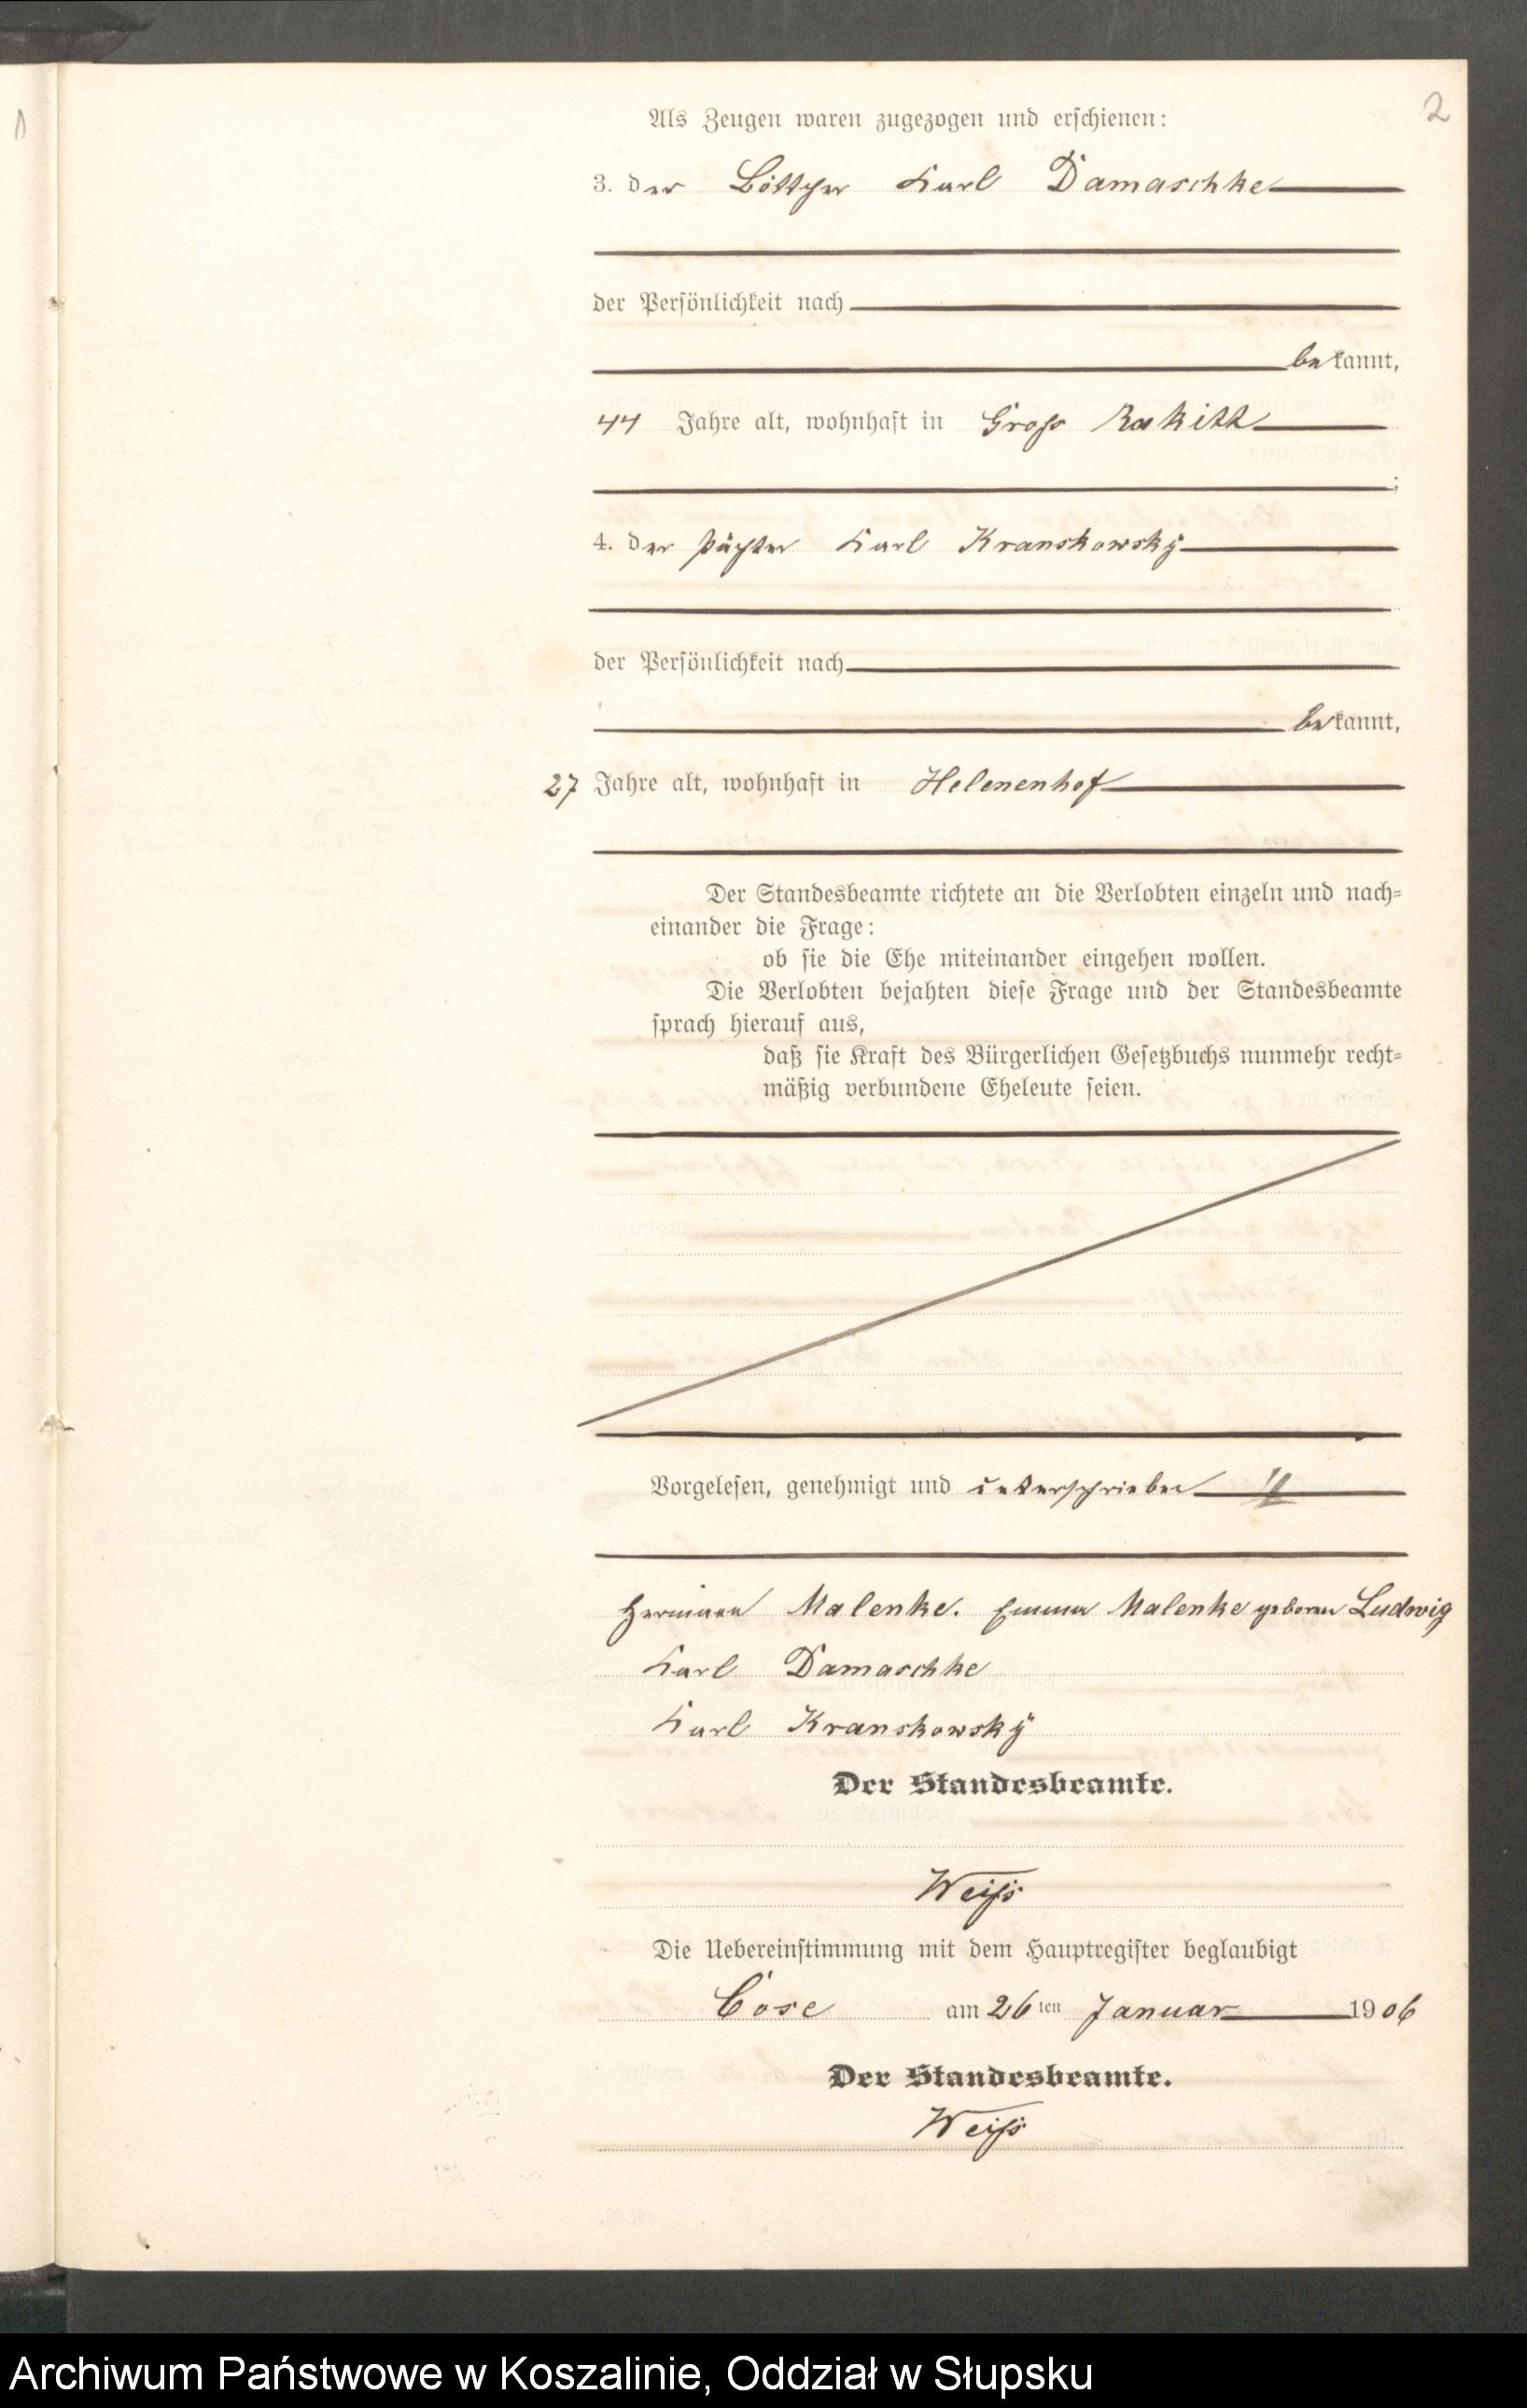 2
Als Zeugen waren zugezogen und erschienen:
3. der Böttcher Karl Damaschke
der Persönlichkeit nach
bekannt,
44 Jahre alt, wohnhaft in Gross Rakitt
;
4. der Pächter Karl Kranskowskÿ
der Persönlichkeit nach
bekannt,
27 Jahre alt, wohnhaft in Helenenhof
Der Standesbeamte richtete an die Verlobten einzeln und nach-
einander die Frage:
ob sie die Ehe miteinander eingehen wollen.
Die Verlobten bejahten diese Frage und der Standesbeamte
sprach hierauf aus,
daß sie Kraft des Bürgerlichen Gesetzbuchs nunmehr recht-
mäßig verbundene Eheleute seien.
Vorgelesen, genehmigt und unterschrieben
Hermann Malenke. Emma Malenke geboren Ludwig
Karl Damaschke
Karl Kranskowskÿ
Der Standesbeamte.
Weiss
Die Uebereinstimmung mit dem Hauptregister beglaubigt
Cose am 26ten Januar 1906
Der Standesbeamte.
Weiss
Archiwum Państwowe w Koszalinie, Oddział w Słupsku